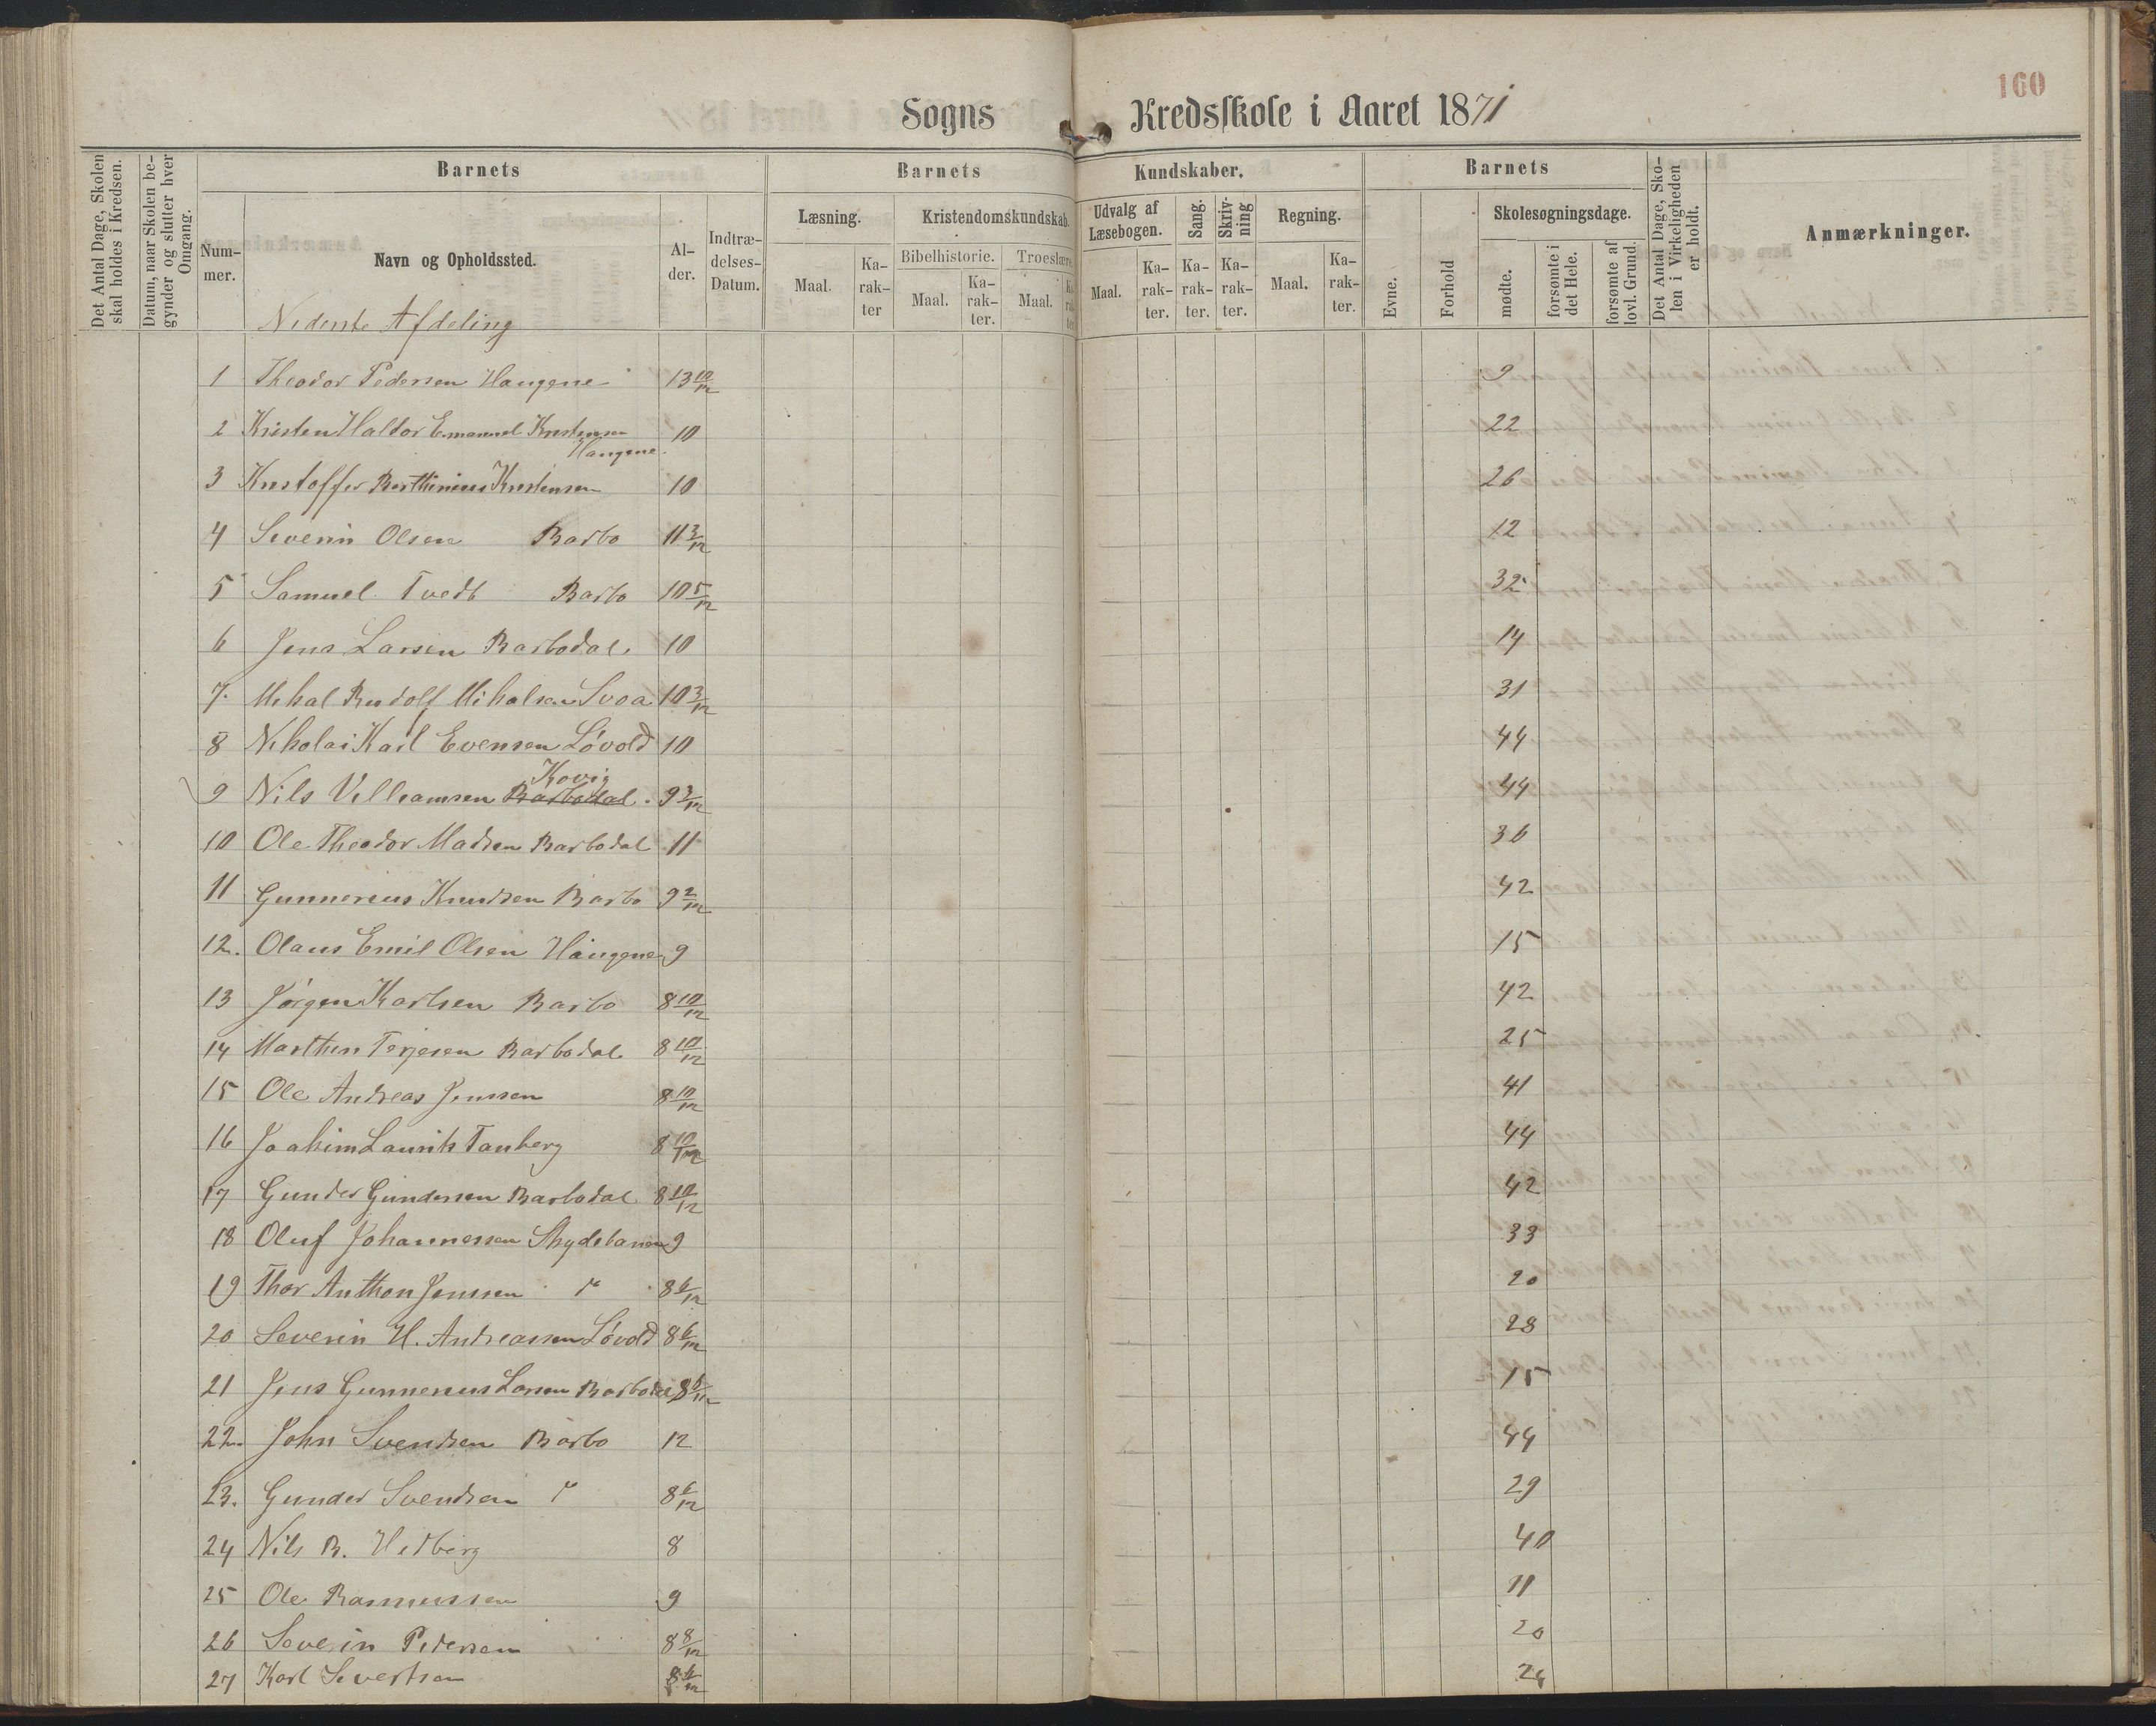 160
Sogns Kredsskole i Aaret 1871
Det Antal Dage, Skolen skal holdes i Kredsen.
Datum, naar Skolen begynder og slutter hver Omgang.
Barnets
Barnets Kundskaber.
Barnets
Det Antal Dage, Skolen i Virkeligheden er holdt.
Anmærkninger.
Nummer.
Navn og Opholdssted.
Alder.
Indtrædelses-Datum.
Læsning.
Kristendomskundskab.
Udvalg af Læsebogen.
Sang.
Skrivning
Regning.
Evne.
Forhold
Skolesøgningsdage.
Bibelhistorie.
Troeslære
Maal.
Karakter
Maal.
Karakter.
Maal.
Maal.
Karakter.
Karakter.
Karakter.
Maal.
Karakter.
mødte.
forsømte i det Hele.
forsømte af lovl. Grund.
Nederste Afdeling
1 Theodor Pedersen Haugene 13 10/12 9
2 Kristen Haldor Emanuel Kristensen Haugene. 10 22
3 Kristoffer Berthinius Kristensen 10 26
4 Severin Olsen Barbo 11 3/12 12
5 Samuel Tvedt Barbo 10 5/12 32
6 Jens Larsen Barbodal. 10 14
7. Mikal Rudolf Mikalsen Svoa 10 3/12 31
8 Nikolai Karl Evensen Løvold 10 44
9 Nils Villiamsen Barbodal. Kovig 9 3/12 44
10 Ole Theodor Madsen Barbodal 11 36
11 Gunnerius Knudsen Barbo 9 2/12 42
12. Olaus Emil Olsen Haugene 9 15
13 Jørgen Karlsen Barbo 8 10/12 42
14 Marthin Terjesen Barbodal 8 10/12 25
15 Ole Andreas Jenssen 8 10/12 41
16 Joakim Laurits Tanberg 8 10/12 44
17 Gunder Gundersen Barbodal 8 10/12 42
18 Oluf Johannessen Skydebanen 9 33
19 Thor Anthon Jenssen " 8 6/12 20
20 Severin H. Andreassen Løvold 8 6/12 28
21 Jens Gunnerius Larsen Barbodal 8 6/12 15
22. John Svendsen Barbo 12 44
23. Gunder Svendsen " 8 6/12 29
24 Nils B. Hedberg 8 40
25 Ole Rasmussen 9 11
26 Severin Pedersen 8 8/12 20
27 Karl Sivertsen 8 6/12